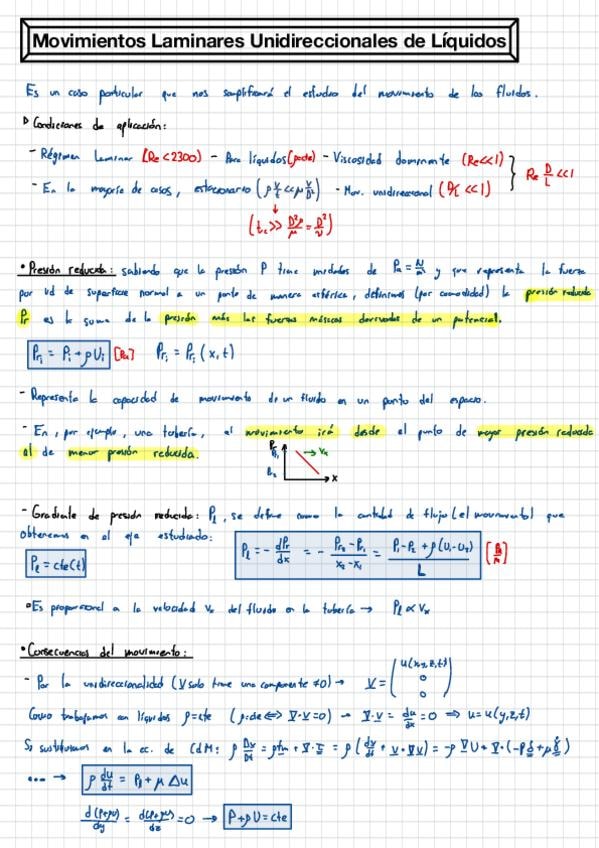 Movimientos Laminares Unidireccionales de Líquidos
Es un caso particular que nos simplificará el estudio del movimiento de los fluidos.
▷ Condiciones de aplicación:
- Régimen laminar (Re < 2300) - Para líquidos (ρ=cte) - Viscosidad dominante (Re << 1)
- En la mayoría de casos, estacionario (ρ V/t << μ V/D²) - Mov. unidireccional (D/L << 1) } Re D/L << 1
↓
(t_c >> D²ρ/μ = D²/ν)
• Presión reducida: sabiendo que la presión P tiene unidades de Pa = N/m² y que representa la fuerza
por ud de superficie normal a un punto de manera esférica, definimos (por comodidad) la presión reducida
Pr es la suma de la presión más las fuerzas másicas derivadas de un potencial.
Pr_i = P_i + ρU_i [Pa] Pr_i = Pr_i (x,t)
- Representa la capacidad de movimiento de un fluido en un punto del espacio.
- En, por ejemplo, una tubería, el movimiento irá desde el punto de mayor presión reducida
al de menor presión reducida.
Pr
P₁ → Vx
P₂
x
- Gradiente de presión reducida: Pl, se define como la cantidad de flujo (el movimiento) que
obtenemos en el eje estudiado:
Pl = cte(t)
Pl = - dPr/dx = - (Pr₂ - Pr₁)/(x₂ - x₁) = (P₁ - P₂ + ρ(U₁ - U₂))/L
• Es proporcional a la velocidad Vx del fluido en la tubería → Pl ∝ Vx
• Consecuencias del movimiento:
- Por la unidireccionalidad (V solo tiene una componente ≠0) → V = (u(x,y,z,t) 0 0)
Como trabajamos con líquidos ρ=cte (ρ=cte ⟺ ∇·V=0) → ∇·V = du/dx = 0 ⇒ u = u(y,z,t)
Si sustituimos en la ec. de CdM: ρ Dv/Dt = ρfm + ∇·τ = ρ(dv/dt + v·∇v) = -ρ∇U + ∇·(-Pδ + μγ̇)
... → ρ du/dt = Pl + μ Δu
d(P+ρU)/dy = d(P+ρU)/dz = 0 → P+ρU = cte